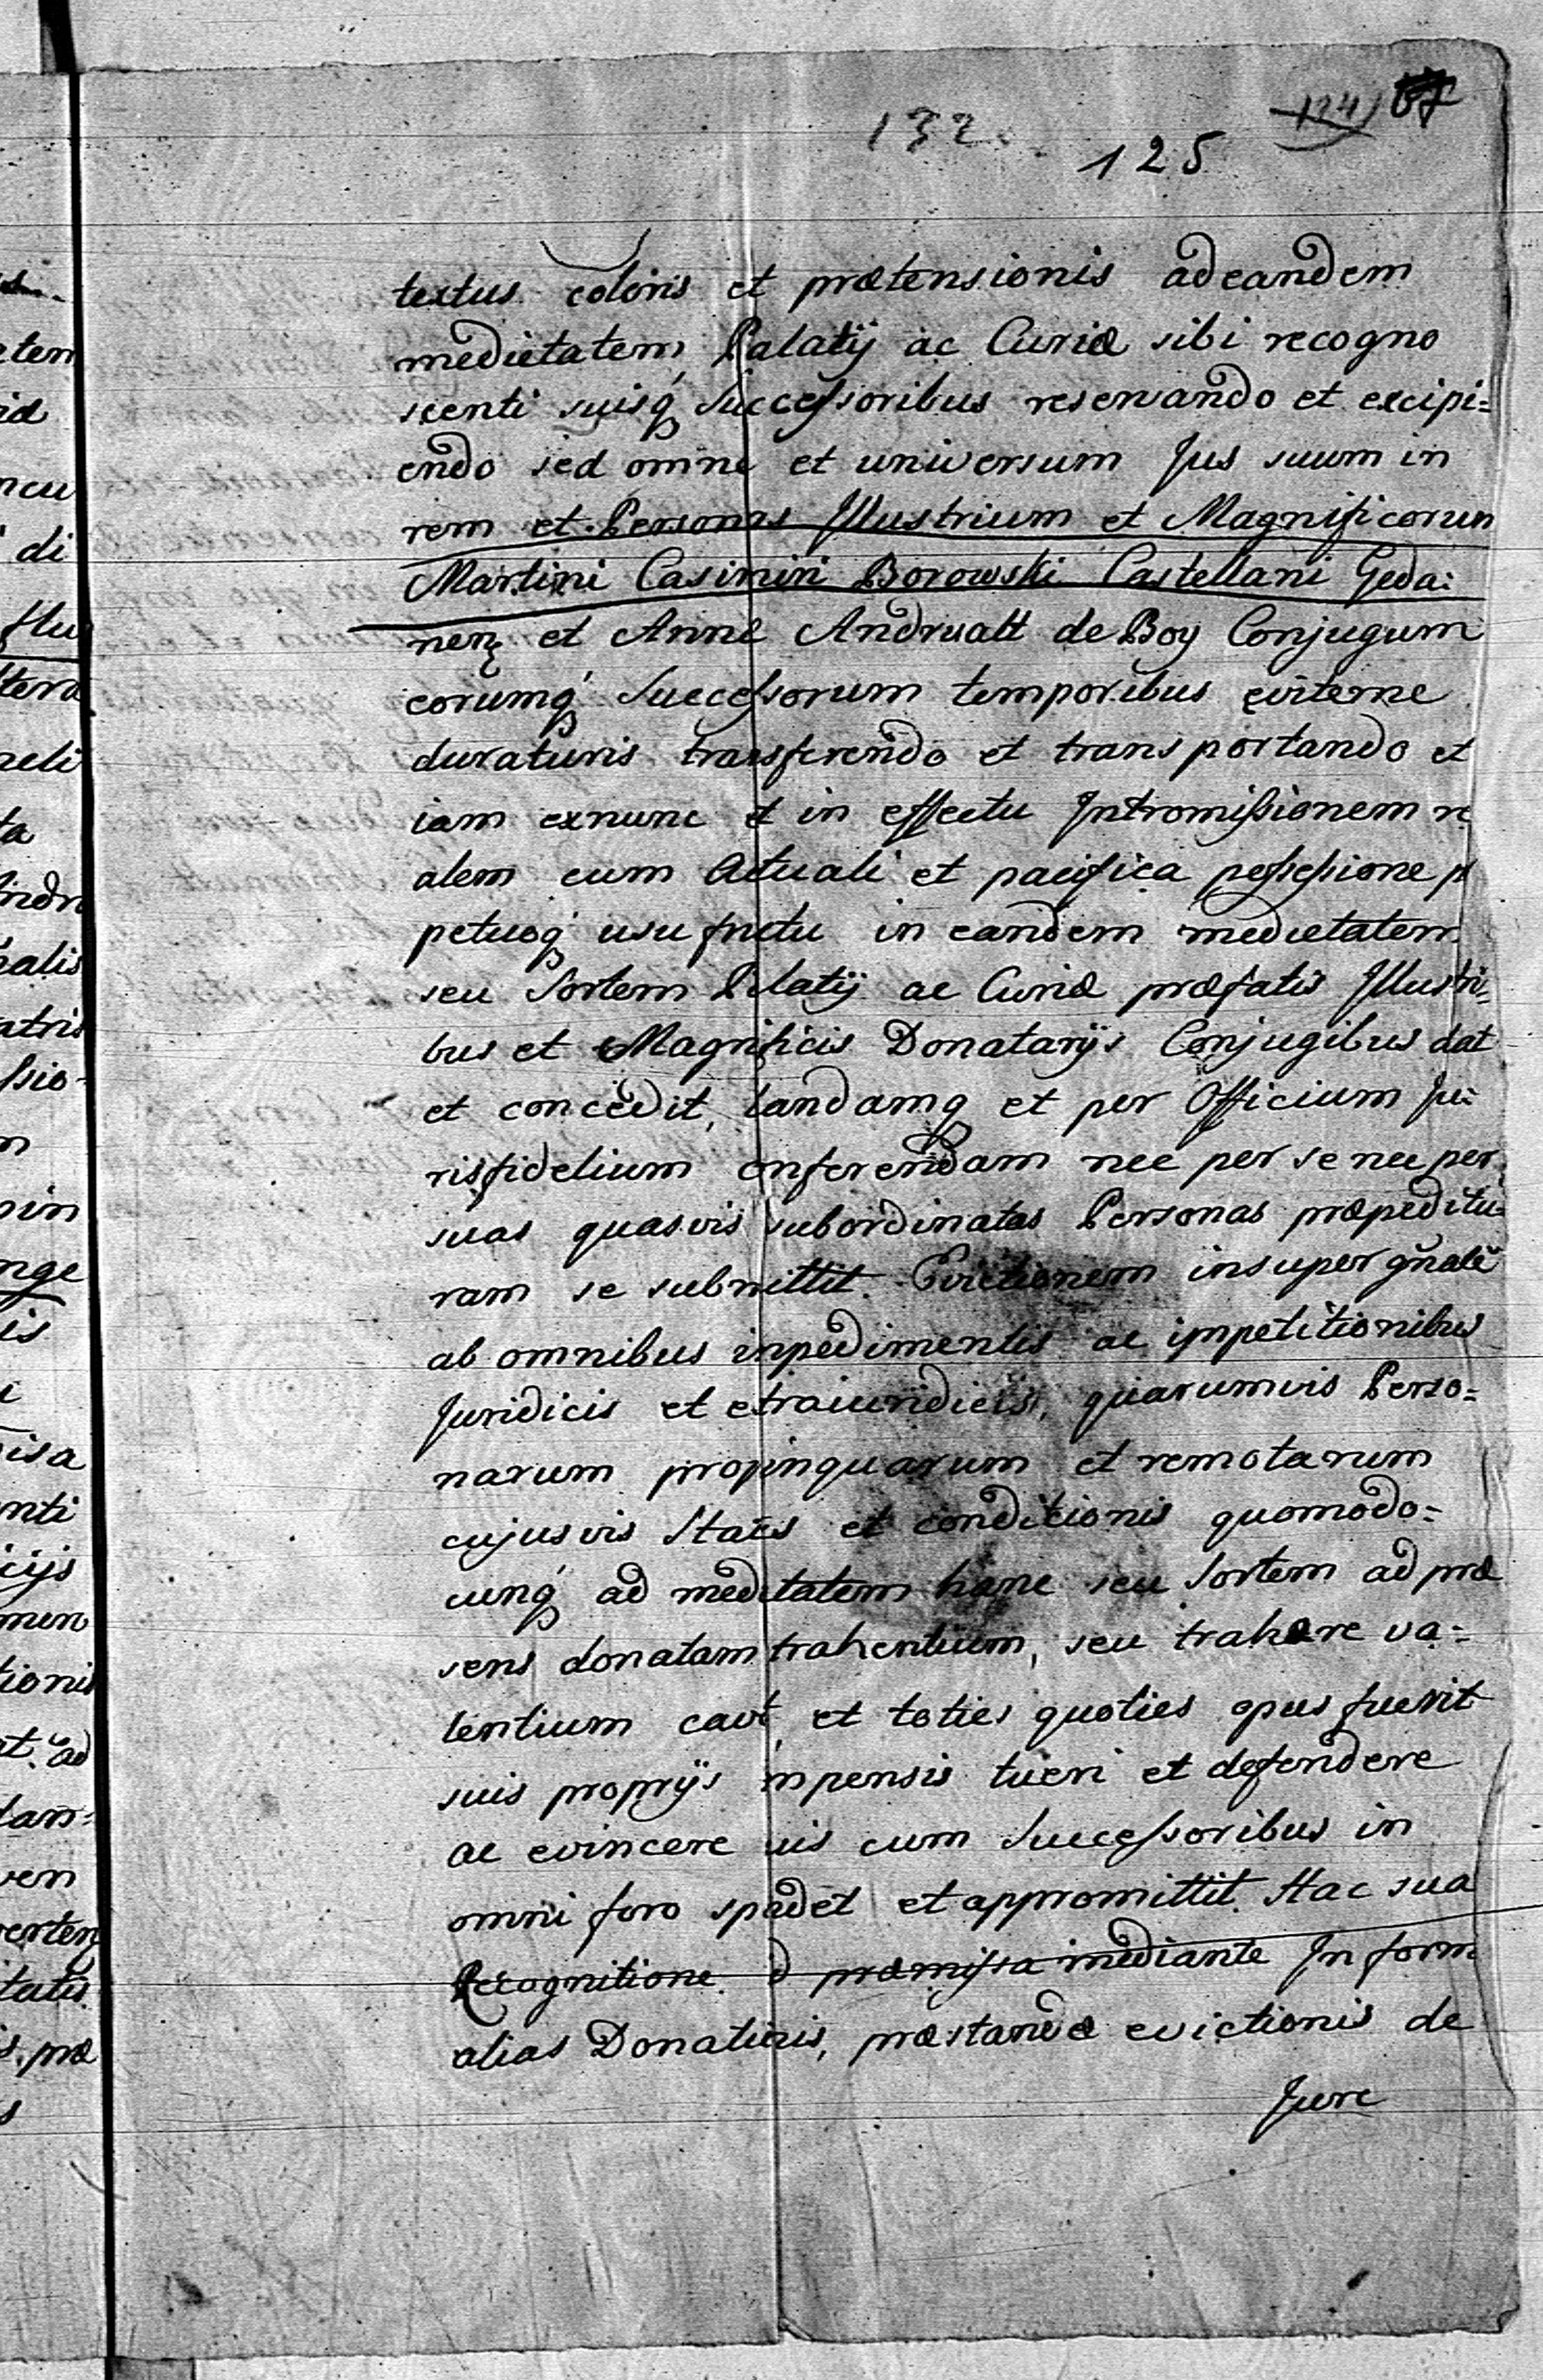 132.
124) 67
125
textus coloris et prætensionis ad eandem
medietatem Palatij ac Curiæ sibi recogno
scenti suisq́ Successoribus reservando et excipi=
endo sed omne et universum Jus suum in
rem et Personas Illustrium et Magnificorum
Martini Casimiri Borowski Castellani Geda:
nen et Annæ Andrualt de Boy Conjugum
eorumq́ Successorum temporibus eviterne
duraturis transferendo et transportando et
iam exnunc et in effectu Intromissionem re
alem cum actuali et pacifica possessione p
petuoq́ usu fructu in eandem medietatem
seu Sortem Palatij ac Curiæ præfatis Illustri=
bus et Magnificis Donatarijs Conjugibus dat
et concedit, tandamq et per Officium Ju=
risfidelium conferendam nec per se nec per
suas quasvis subordinatas Personas præpeditu=
ram se submittit. Evictionem insuper gñalẽ
ab omnibus inpedimentis ac impetitionibus
Juridicis et etraiuridicis, quarumvis Perso=
narum propinquarum et remotarum
cujusvis Statūs et conditionis quomodo=
cunq́ ad meditatem hanc seu Sortem ad præ
sens donatam trahentium, seu trahere va=
lentium cavt, et toties quoties opus fuerit
suis proprijs inpensis tueri et defendere
ac evincere uis cum Successoribus in
omni foro spadet et appromittit. Hac sua
Recognitione præmissa mediante In form
alias Donationis, præstandæ evictionis de
Jure